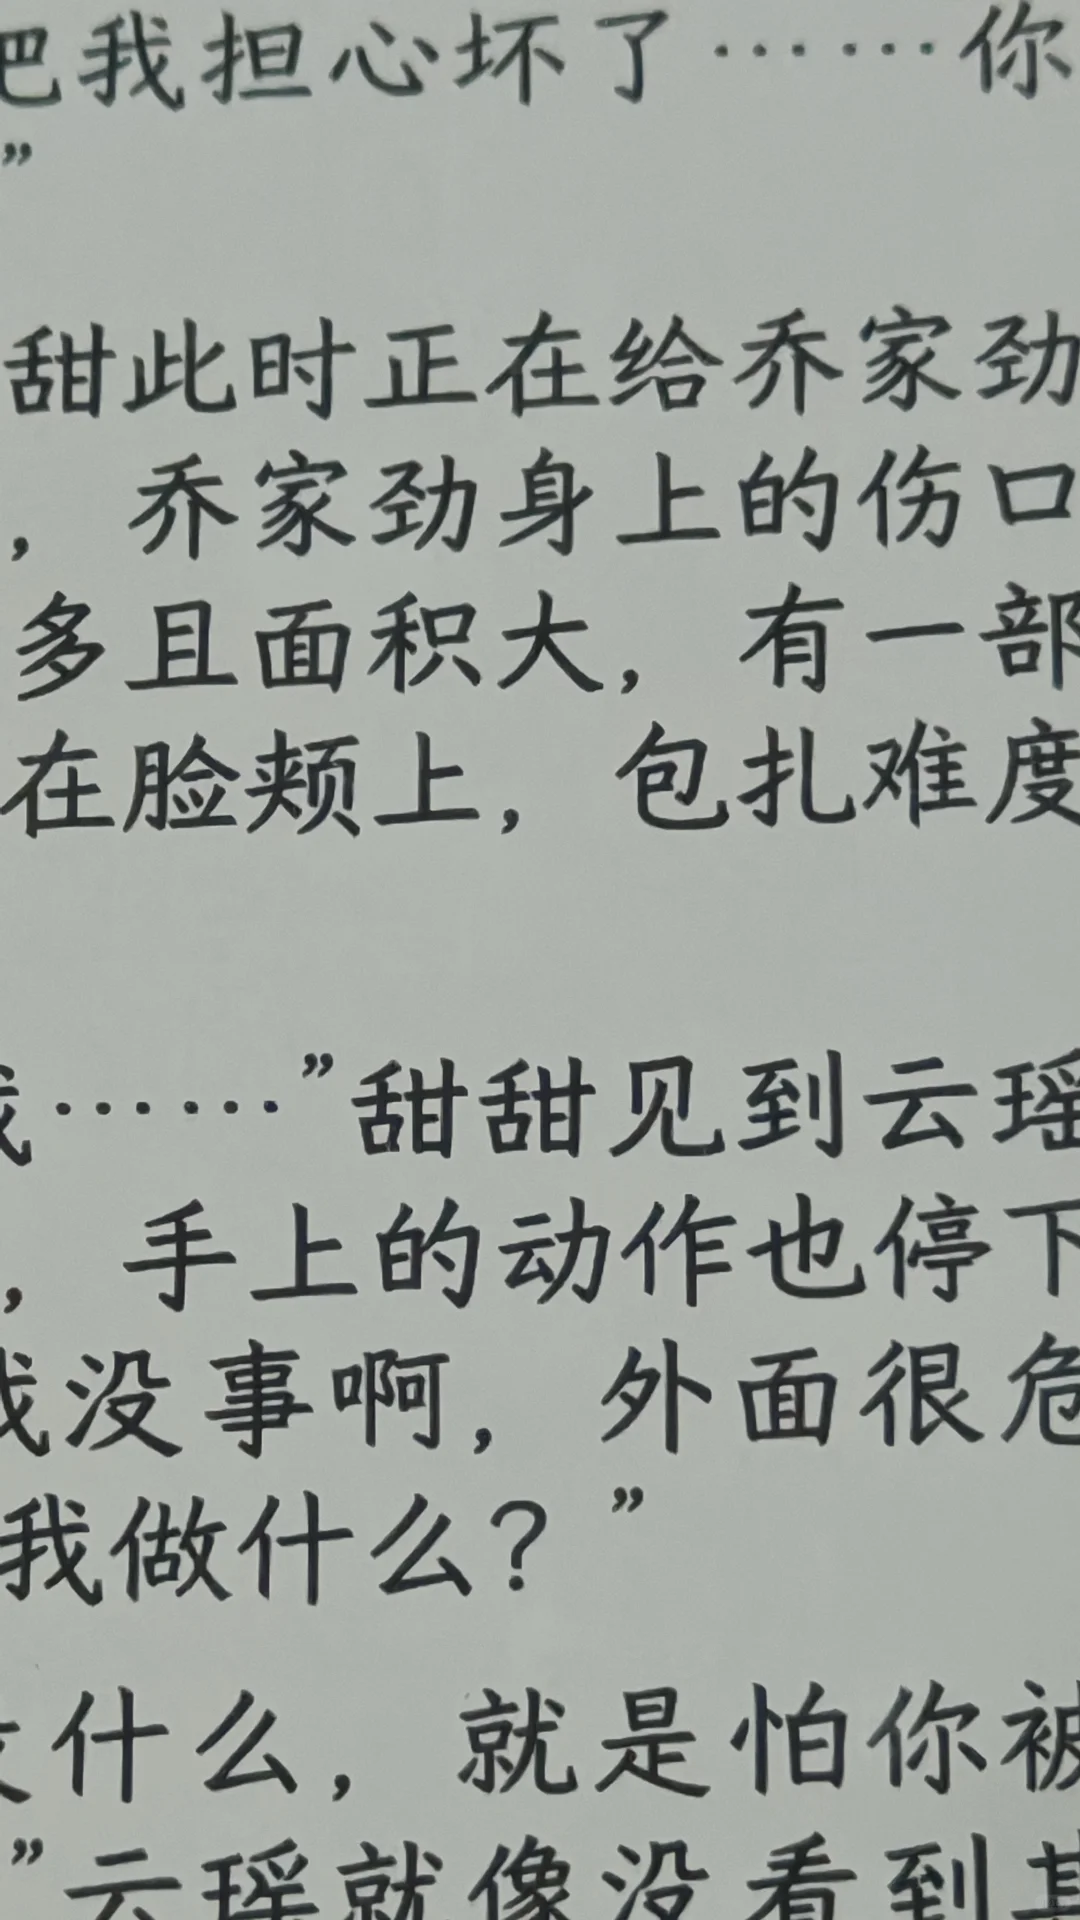 把我担心坏了……你
”
甜此时正在给乔家劲
，乔家劲身上的伤口
多且面积大，有一部
在脸颊上，包扎难度
我……”甜甜见到云瑶
，手上的动作也停下
我没事啊，外面很危
我做什么？”
什么，就是怕你被
”云瑶就像没看到其